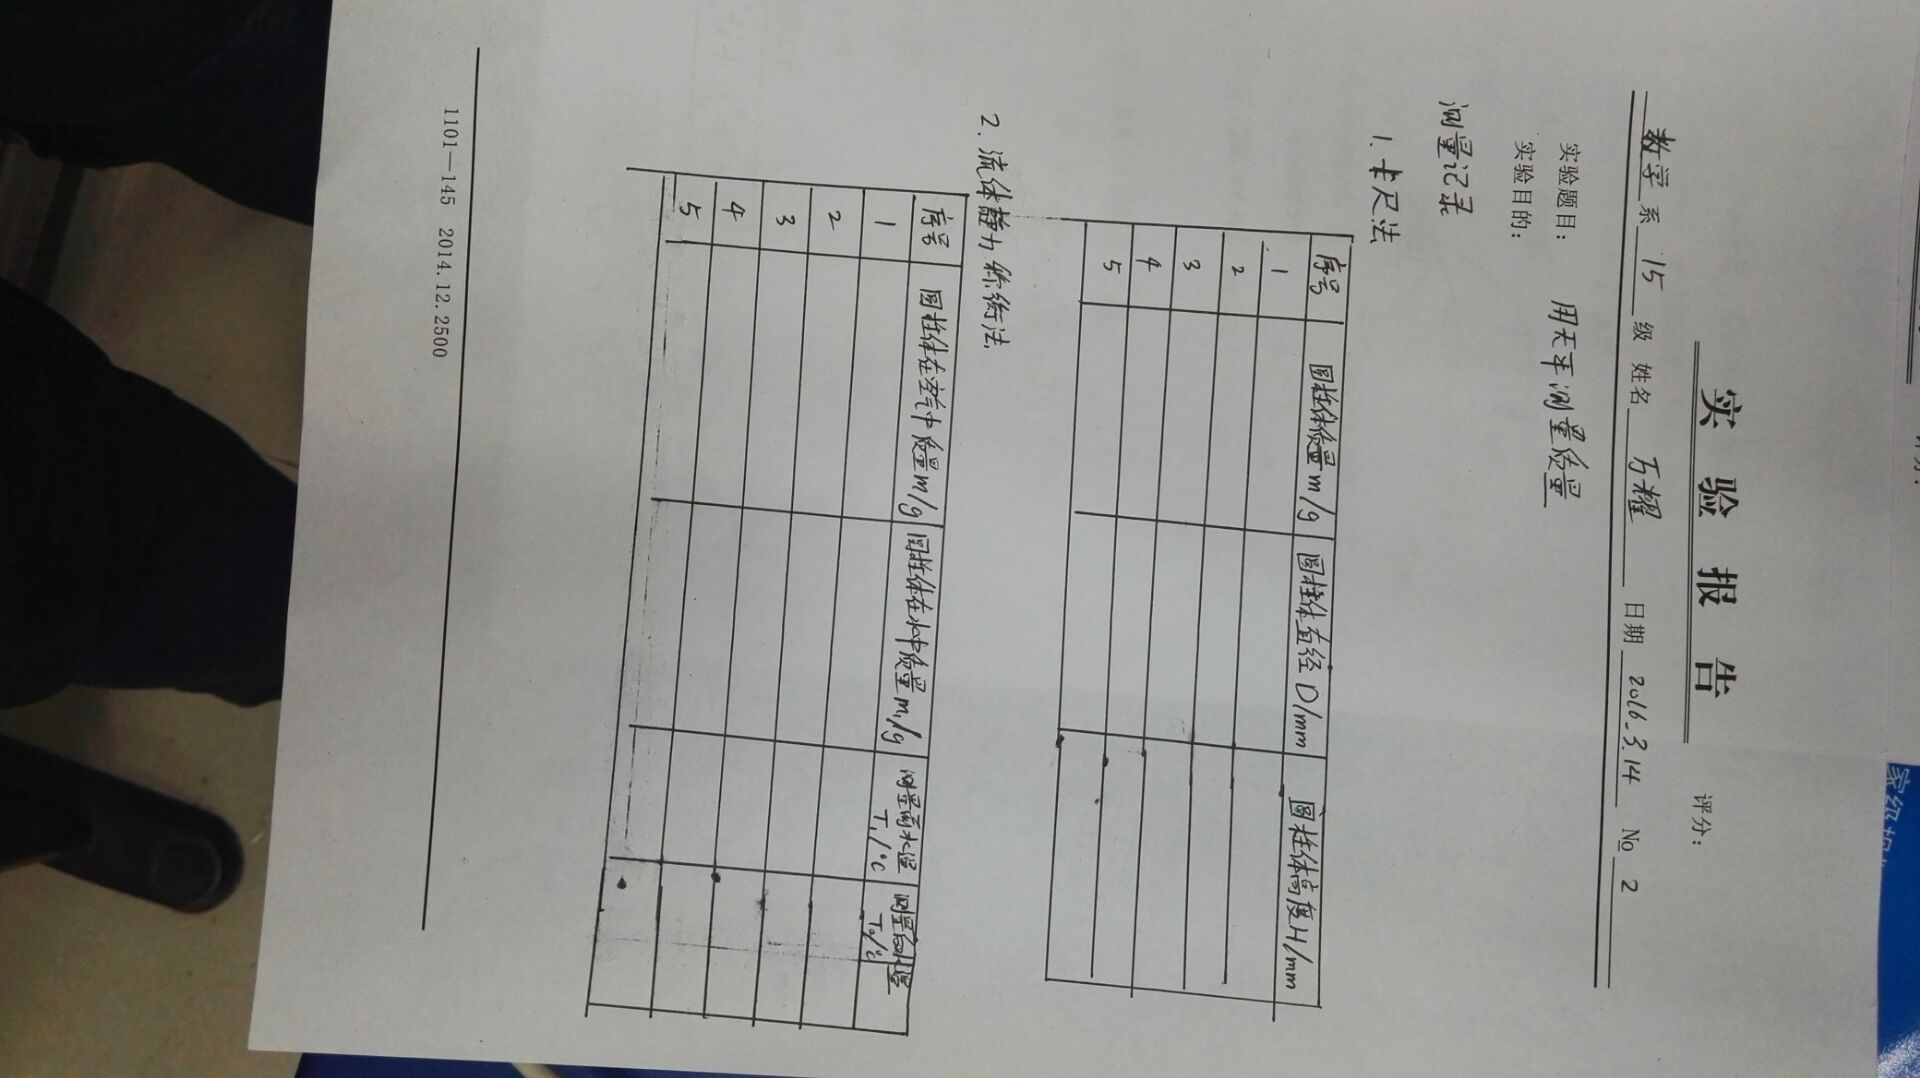 实验报告
评分：
数学系 15 级 姓名 万耀 日期 2016.3.14 No 2
实验题目： 用天平测量质量
实验目的：
测量记录
1. 卡尺法
序号 圆柱体质量m/g 圆柱体直径D/mm 圆柱体高度H/mm
1
2
3
4
5
2. 流体静力称衡法
序号 圆柱体在空气中质量m/g 圆柱体在水中质量m₁/g 测量前水温T₁/°C 测量后水温T₂/°C
1
2
3
4
5
1101—145 2014.12.2500
评分：